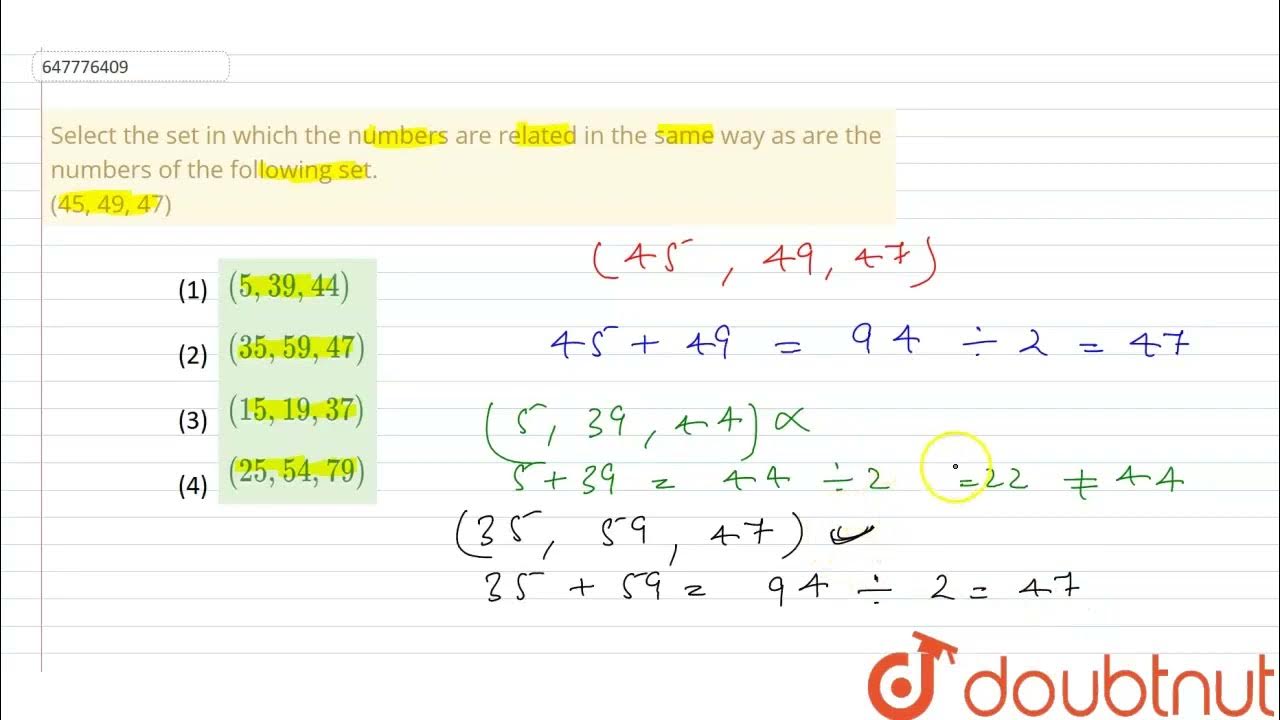 647776409
Select the set in which the numbers are related in the same way as are the
numbers of the following set.
(45, 49, 47)
(1) (5, 39, 44)
(2) (35, 59, 47)
(3) (15, 19, 37)
(4) (25, 54, 79)
(45, 49, 47)
45 + 49 = 94 ÷ 2 = 47
(5, 39, 44) ∝
5 + 39 = 44 ÷ 2 = 22 ≠ 44
(35, 59, 47) ✓
35 + 59 = 94 ÷ 2 = 47
doubtnut